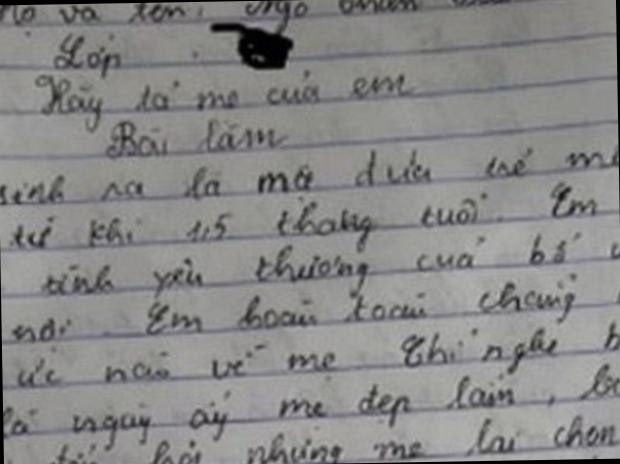 Họ và tên: Ngô
Lớp
Hãy tả mẹ của em
Bài làm
sinh ra là mồ đứa trẻ m
từ khi 1,5 tháng tuổi. Em
tình yêu thương của bố
nội. Em hoàn toàn chẳng
ức nào về mẹ. Chỉ nghe b
là ngày ấy mẹ đẹp lắm, b
hỏi nhưng mẹ lại chọn